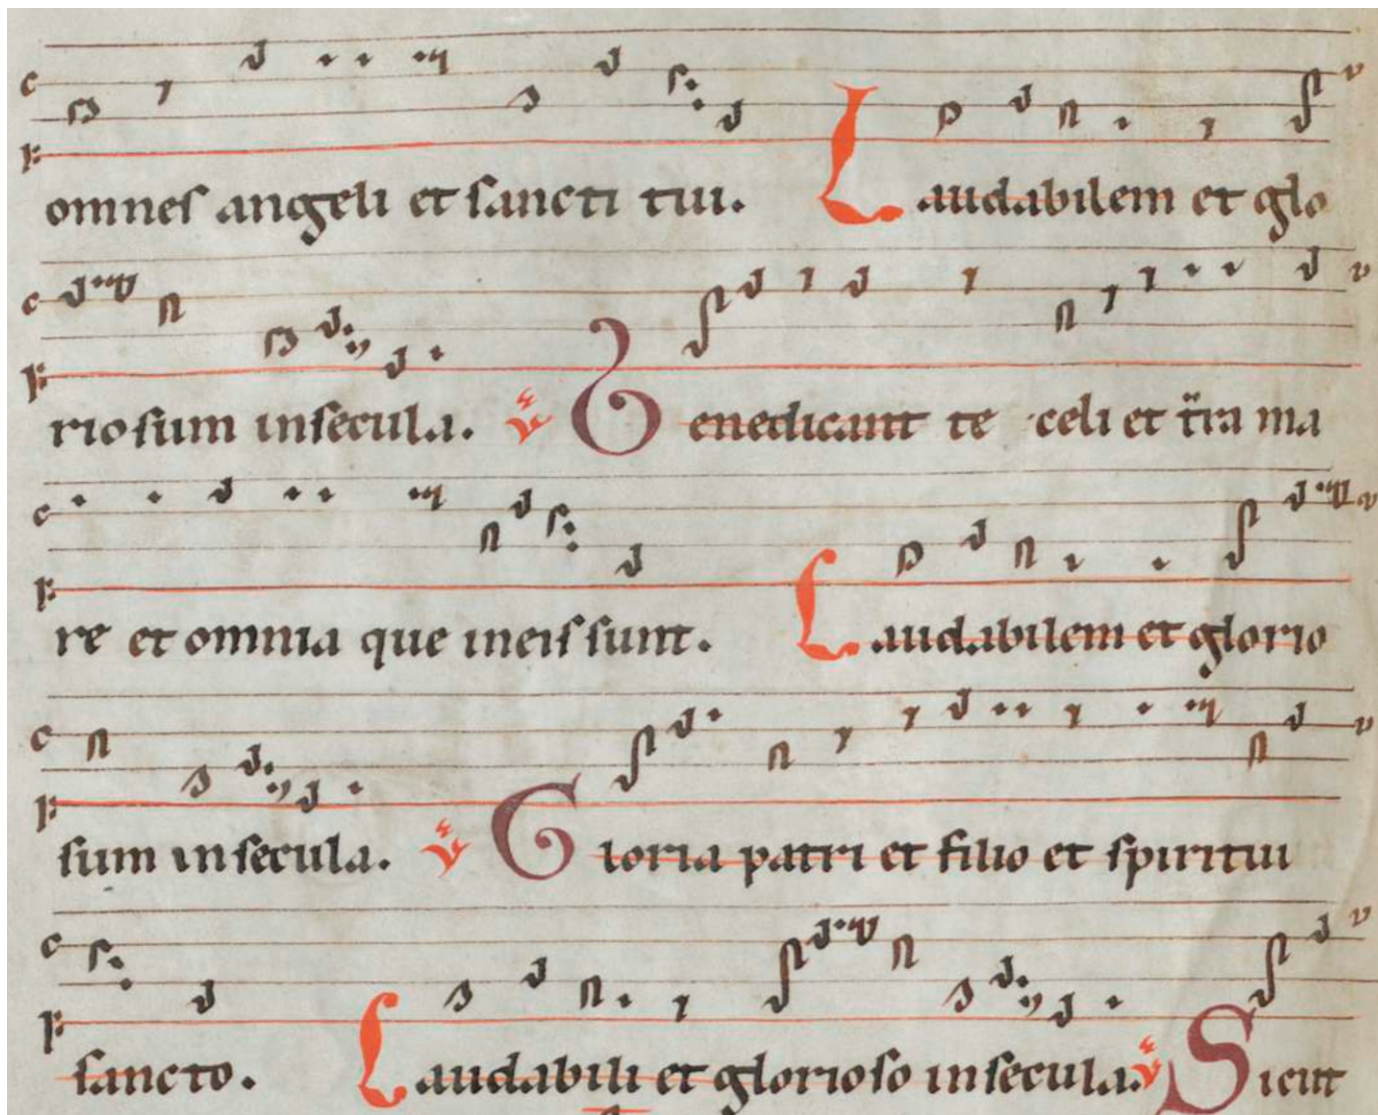 omnes angeli et sancti tui. Laudabilem et glo
riosum insecula. V Benedicant te celi et tra ma
re et omnia que ineis sunt. Laudabilem et glorio
sum insecula. V Gloria patri et filio et spiritui
sancto. Laudabili et glorioso insecula. V Sicut